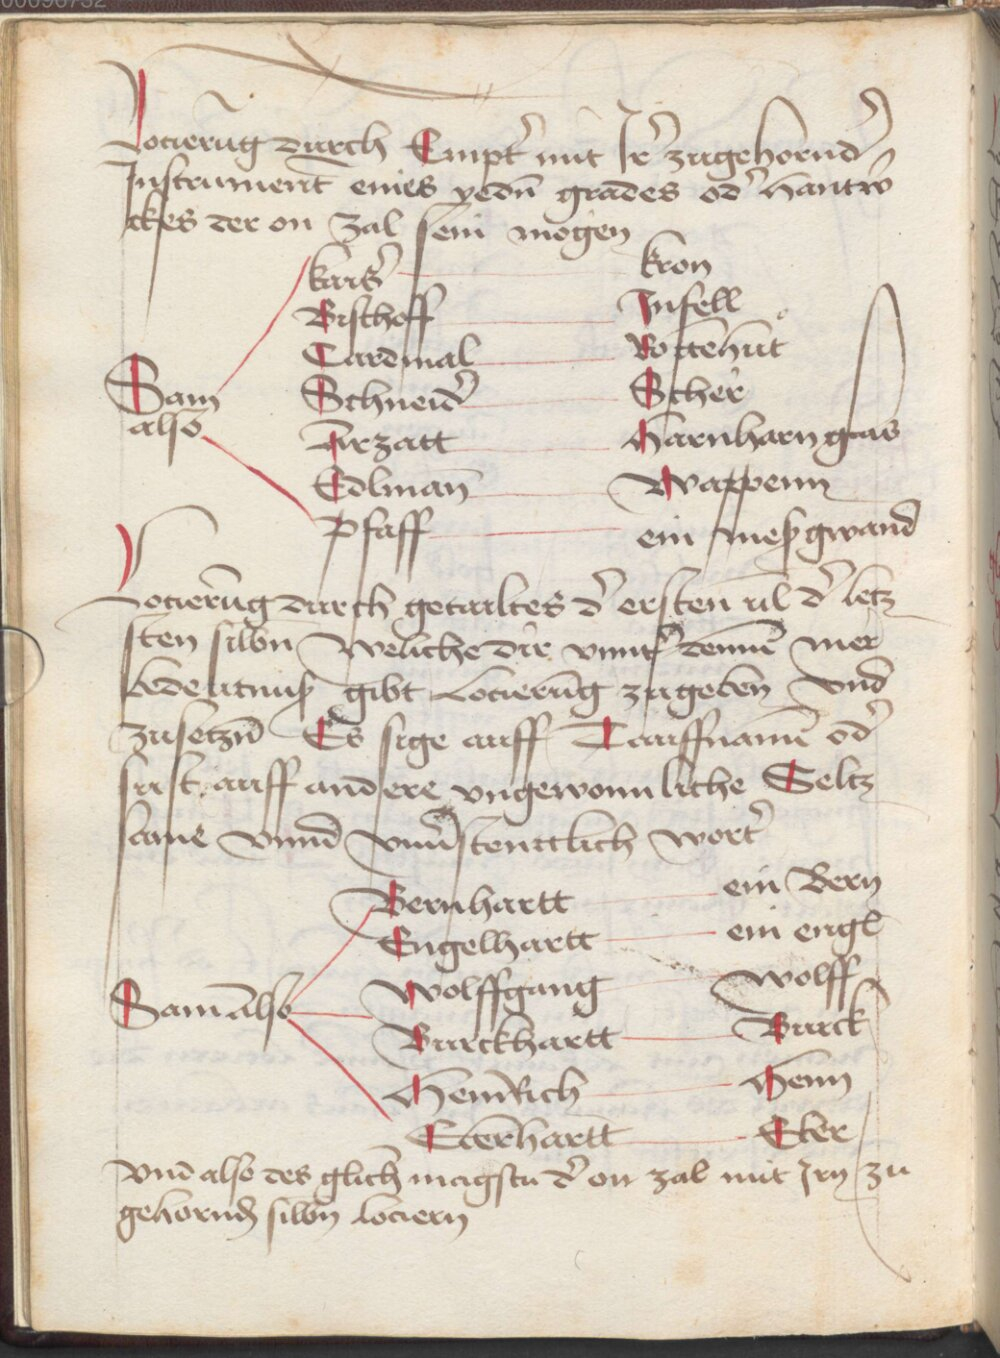 00096732
Locierūg durch Empt᷑ mit Ir᷑ zugehornd᷑
Instrument̄ eines yedn̄ grades od᷑ hantw᷑
ckes der on zal sein mogen
kaiß᷑ kron
Bischoff Infell
Cardinal Rottehůt
Sam Schneid᷑ Scher
also Artzatt Harnharn glas
Edlman̄ Wappenn
Pfaff ein meßgwand
Locierūg durch getailtes d᷑ ersten vil d᷑ letz
sten silbn Weliche dir vnnt᷑ dennē mer
bedeutnuß gibt Locierūg zugebēn vnd
zusetzn̄ Es sige auff Tauffnamē od᷑
sust auff andere vngewonnliche Seltz
same vnnd vnu᷑stenttlich wort᷑
Bernhartt ein Bern
Engelhartt ein engl
Wolffgang Wolff
Sam Also Burckhartt Burck
Heinrich Henn
Eberhartt Eber
Vnd also des glich magstu d᷑ on zal mit Irn zu
gehornd silbn Lociern